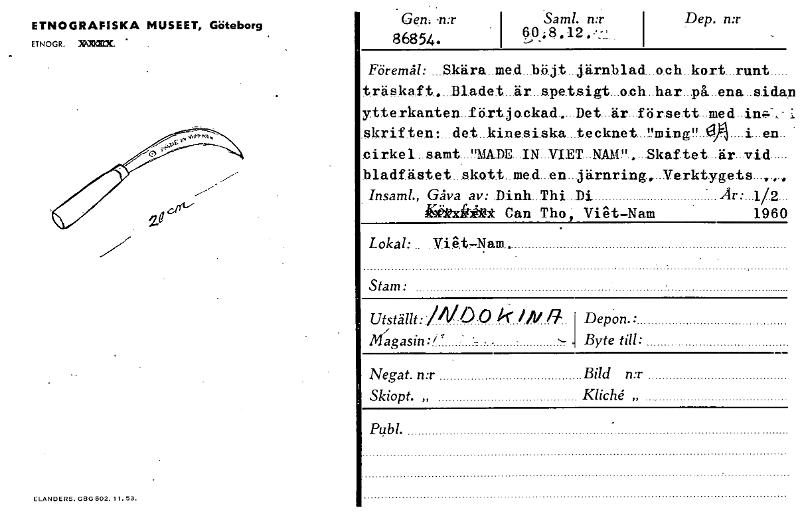 ETNOGRAFISKA MUSEET, Göteborg
ETNOGR.
MADE IN VIET NAM
20 cm
ELANDERS, GBG 802. 11. 53.
Gen. n:r Saml. n:r Dep. n:r
86854. 60.8.12.
Föremål: Skära med böjt järnblad och kort runt
träskaft. Bladet är spetsigt och har på ena sidan
ytterkanten förtjockad. Det är försett med in-
skriften: det kinesiska tecknet "ming" 明 i en
cirkel samt "MADE IN VIET NAM". Skaftet är vid
bladfästet skott med en järnring. Verktygets ...
Insaml., Gåva av: Dinh Thi Di År: 1/2
Can Tho, Viêt-Nam 1960
Lokal: Viêt-Nam.
Stam:
Utställt: INDOKINA Depon.:
Magasin: Byte till:
Negat. n:r Bild n:r
Skiopt. „ Kliché „
Publ.